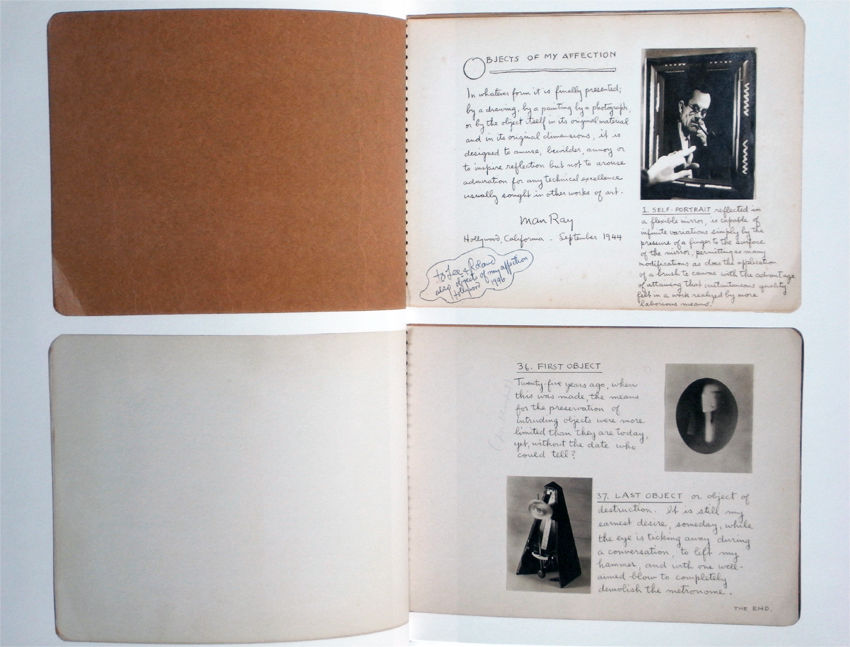 OBJECTS OF MY AFFECTION
In whatever form it is finally presented;
by a drawing, by a painting, by a photograph,
or by the object itself in its original material
and in its original dimensions, it is
designed to amuse, bewilder, annoy or
to inspire reflection but not to arouse
admiration for any technical excellence
usually sought in other works of art.
Man Ray
Hollywood, California - September 1944
To Lee & Roland
also objects of my affection
Hollywood 1946
1. SELF-PORTRAIT reflected in
a flexible mirror, is capable of
infinite variations simply by the
pressure of a finger to the surface
of the mirror, permitting as many
modifications as does the application
of a brush to canvas with the advantage
of attaining that instantaneous quality
felt in a work realized by more
laborious means.
36. FIRST OBJECT
Twenty-five years ago, when
this was made, the means
for the preservation of
intruding objects were more
limited than they are today,
yet, without the date who
could tell?
37. LAST OBJECT or object of
destruction. It is still my
earnest desire, someday, while
the eye is ticking away during
a conversation, to lift my
hammer, and with one well-
aimed blow to completely
demolish the metronome.
THE END.